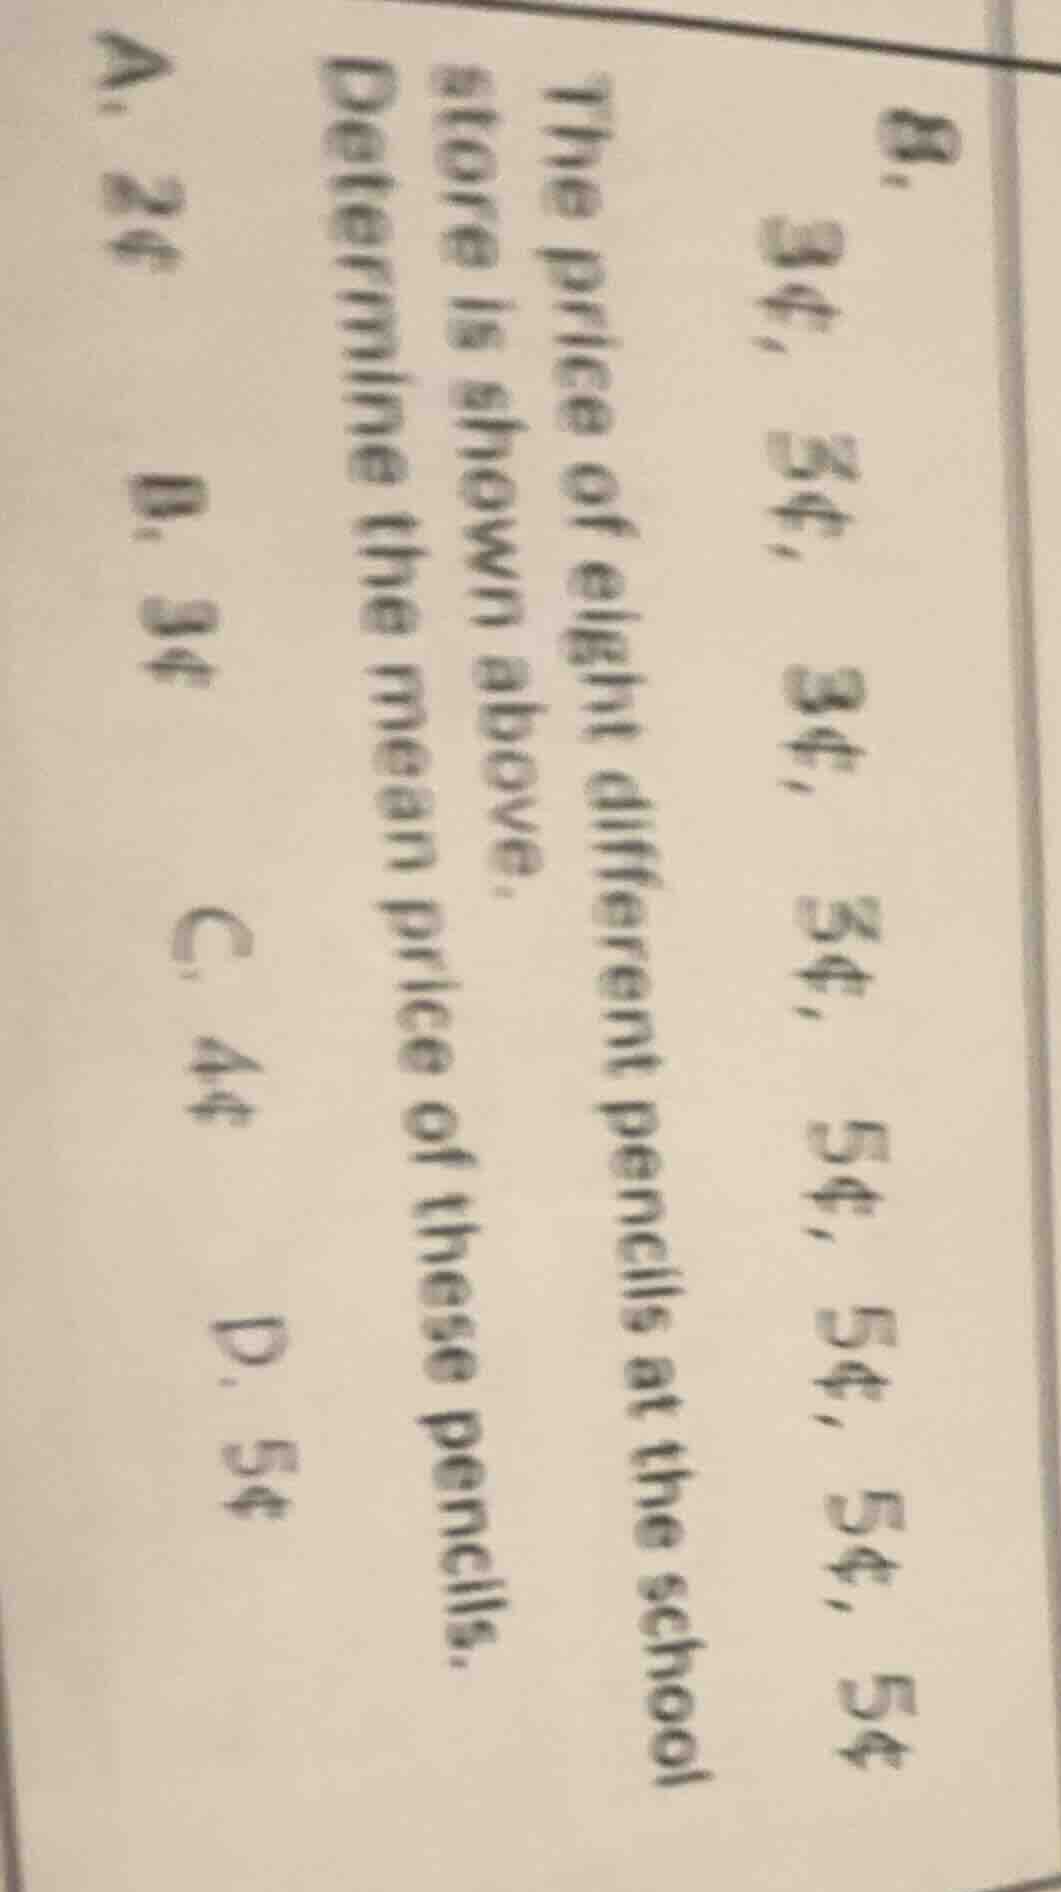 8.
3¢, 3¢, 3¢, 3¢, 5¢, 5¢, 5¢, 5¢
The price of eight different pencils at the school
store is shown above.
Determine the mean price of these pencils.
A. 2¢ B. 3¢ C. 4¢ D. 5¢